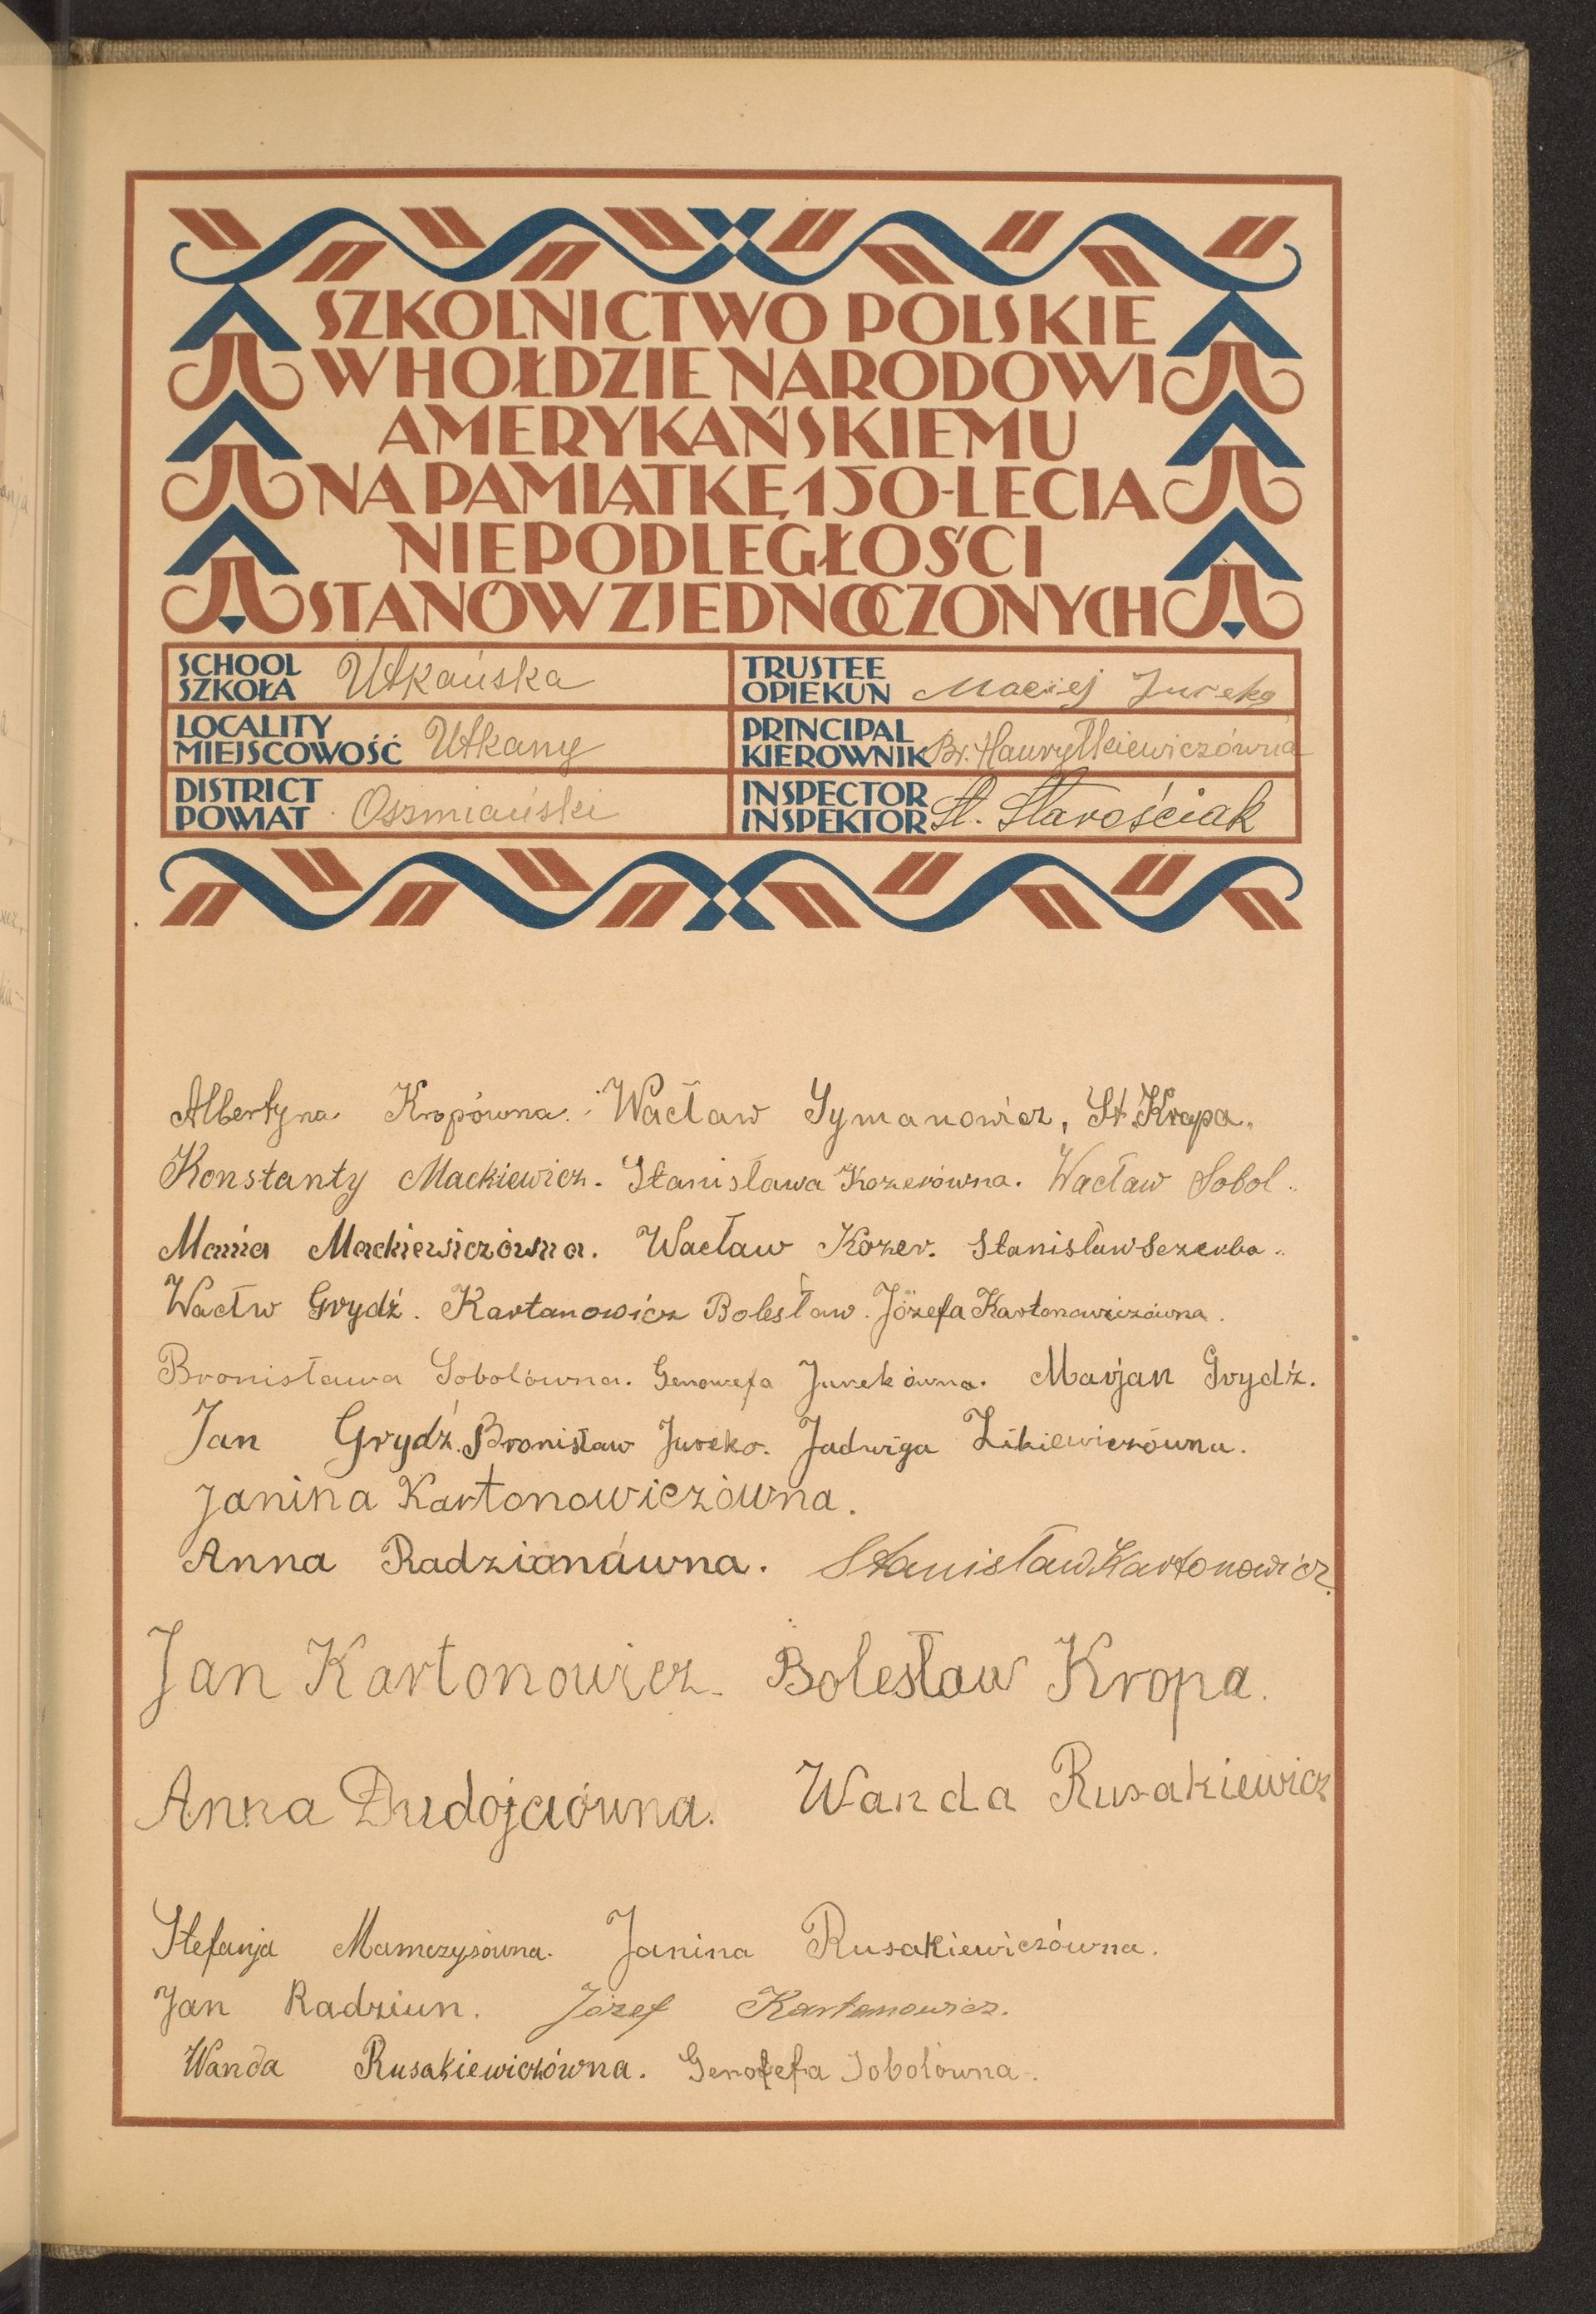 SZKOLNICTWO POLSKIE
W HOŁDZIE NARODOWI
AMERYKAŃSKIEMU
NA PAMIĄTKĘ 150-LECIA
NIEPODLEGŁOŚCI
STANÓW ZJEDNOCZONYCH
SCHOOL
SZKOŁA Utkańska
TRUSTEE
OPIEKUN Maciej Jureko
LOCALITY
MIEJSCOWOŚĆ Utkany
PRINCIPAL
KIEROWNIK Br. Hawryłkiewiczówna
DISTRICT
POWIAT Oszmiański
INSPECTOR
INSPEKTOR St. Starościak
Albertyna Kropówna. Wacław Symanowicz, St. Kropa.
Konstanty Mackiewicz. Stanisława Kozerówna. Wacław Sobol.
Marja Mackiewiczówna. Wacław Kozer. Stanisław Sczerba.
Wacłw Grydź. Kartanowicz Bolesław. Józefa Kartonowiczówna.
Bronisława Sobolówna. Genowefa Jurekówna. Marjan Grydź.
Jan Grydź. Bronisław Jureko. Jadwiga Żikiewiczówna.
Janina Kartonowiczówna.
Anna Radzianówna. Stanisław Kartonowicz.
Jan Kartonowicz. Bolesław Kropa.
Anna Dudojciówna. Wanda Rusakiewicz
Stefanja Mamczysówna. Janina Rusakiewiczówna.
Jan Radziun. Józef Kartanowicz.
Wanda Rusakiewiczówna. Genofefa Sobolówna.